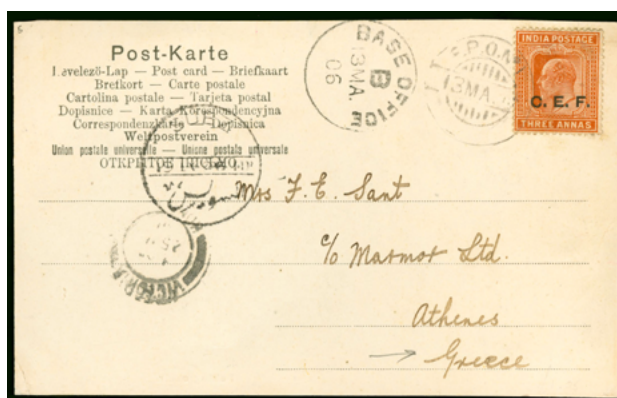 Post-Karte
Levelező-Lap — Post card — Briefkaart
Brefkort — Carte postale
Cartolina postale — Tarjeta postal
Dopisnice — Karta Korespondencyjna
Correspondenzkarte — Dopisnica
Weltpostverein
Union postale universelle — Unione postale universale
ОТКРЫТОЕ ПИСЬМО
BASE OFFICE
B
13 MA.
06
F.P.O.
13 MA.
INDIA POSTAGE
C. E. F.
THREE ANNAS
السويس
VICTORIA
Mrs F. E. Sant
c/o Marmor Ltd.
Athenes
Greece